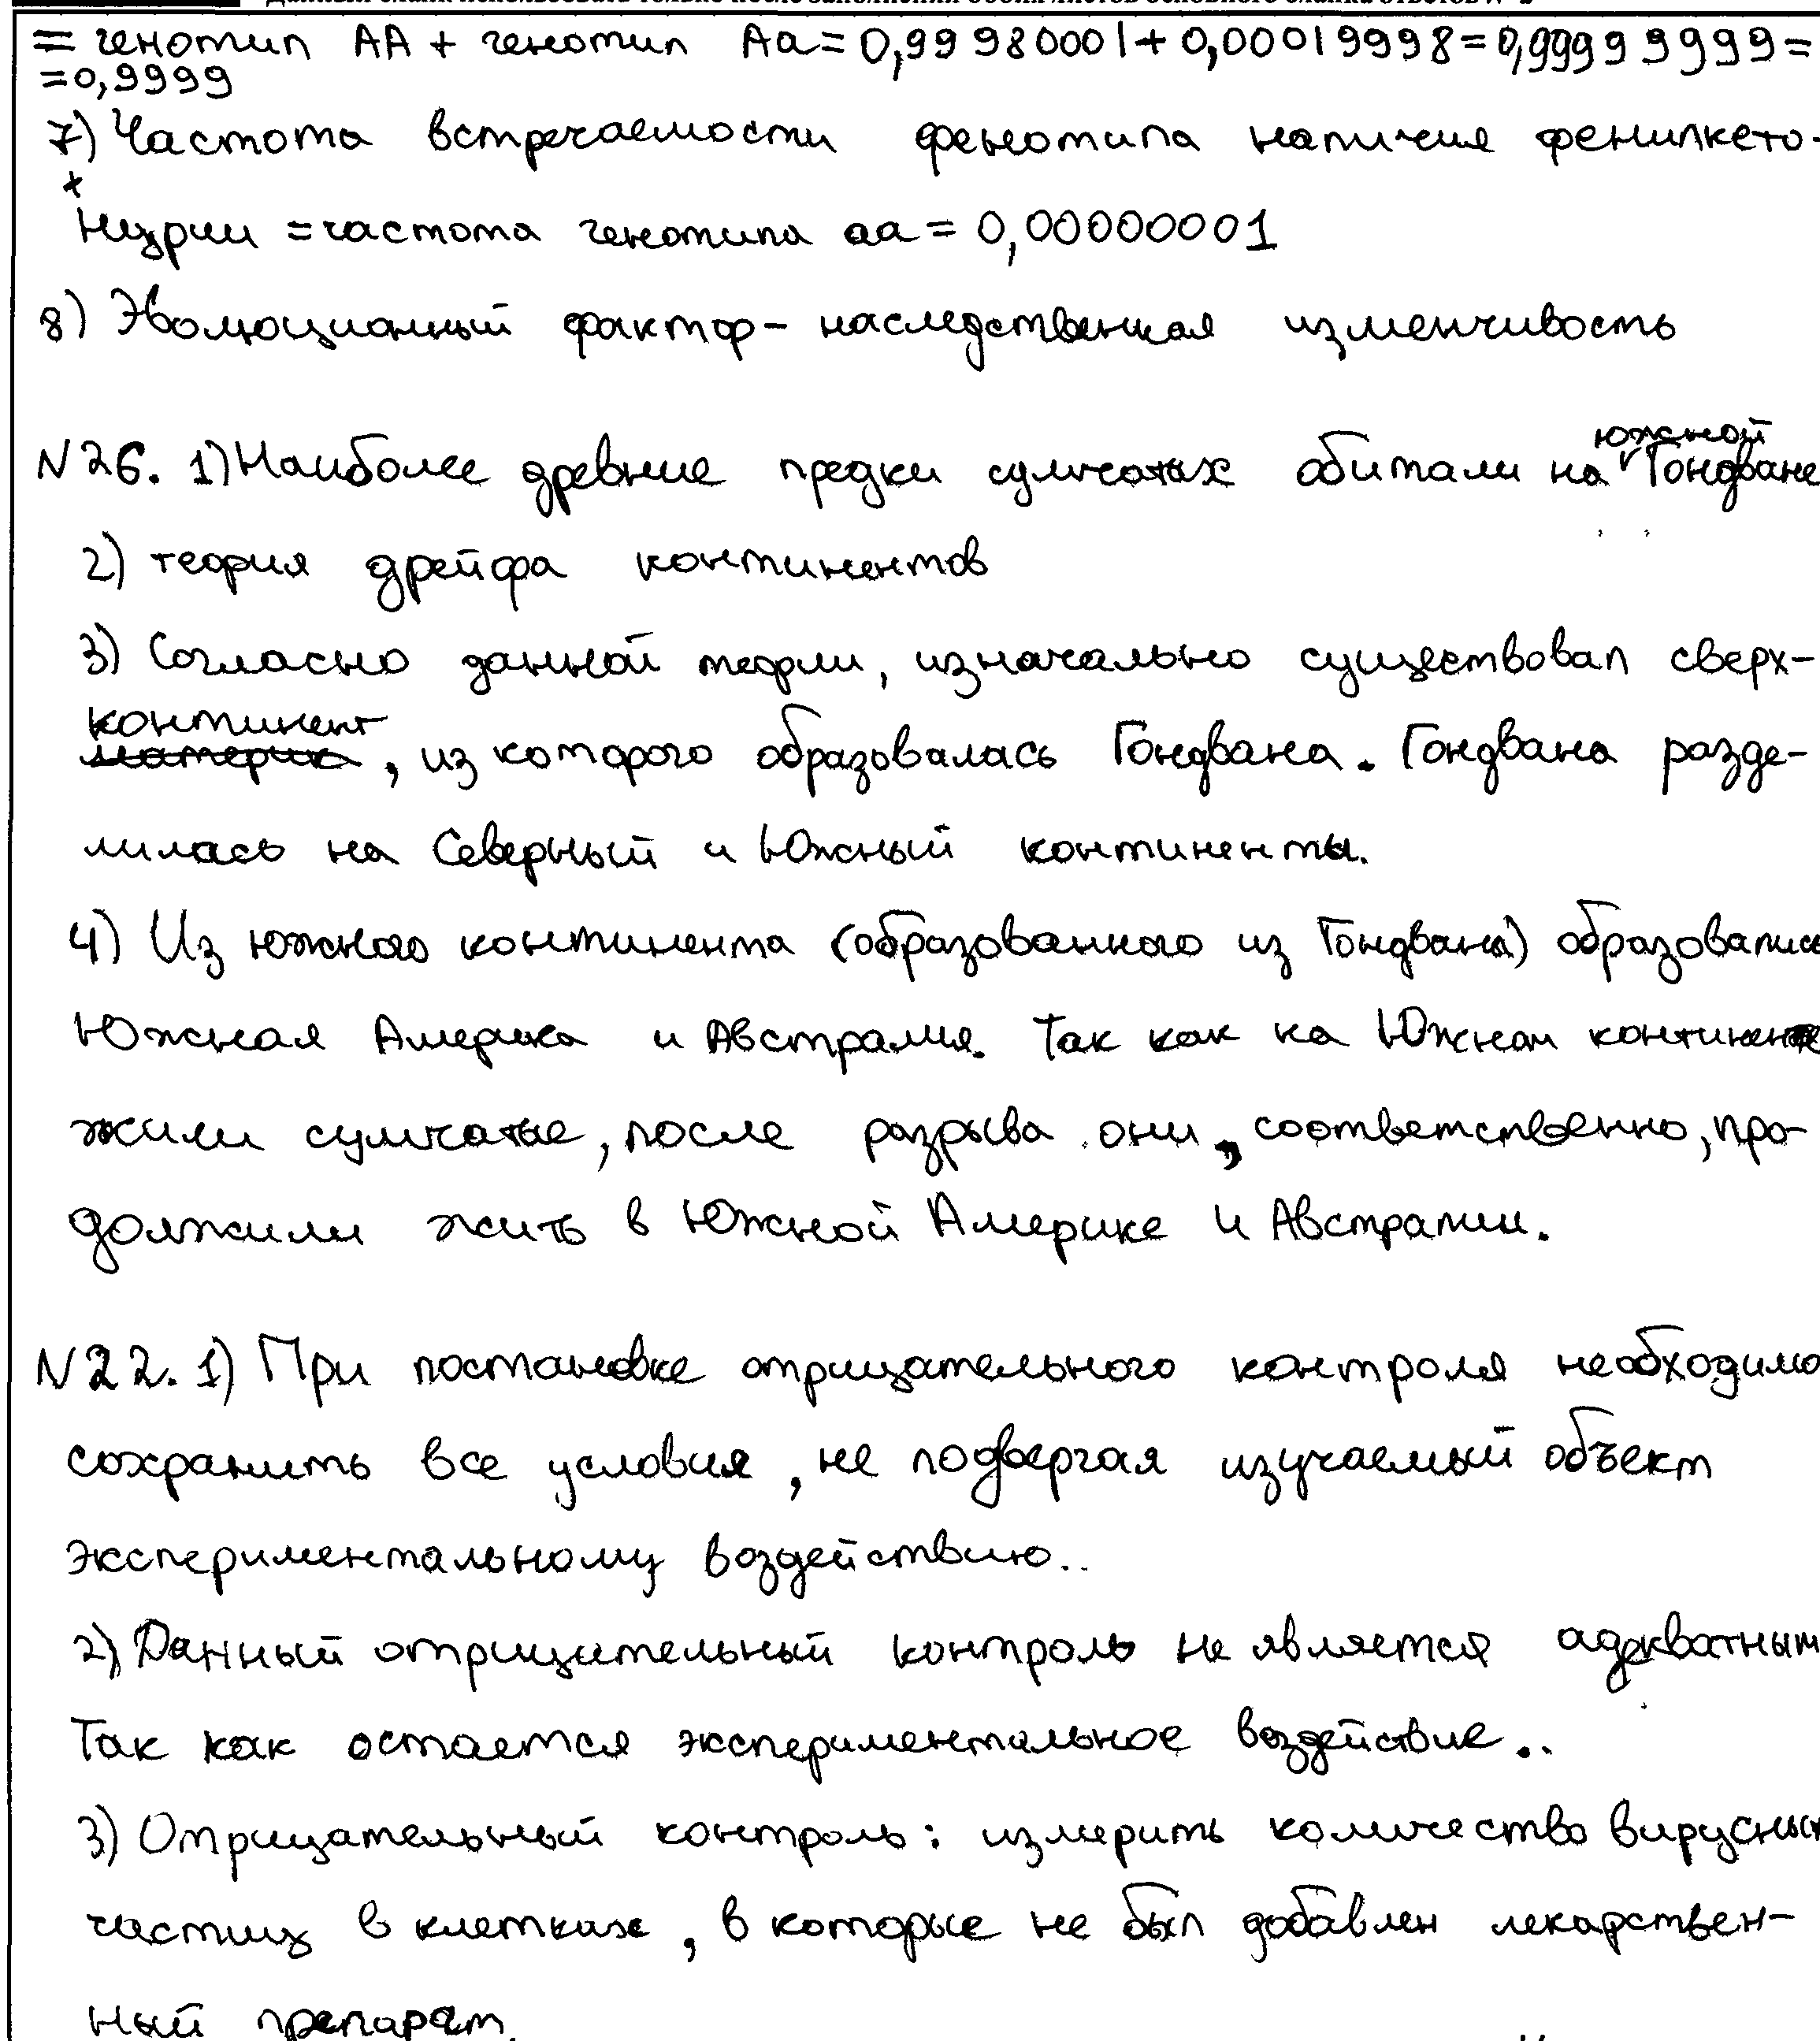 = генотип АА + генотип Аа = 0,99980001 + 0,00019998 = 0,99999999 =
= 0,9999
7) Частота встречаемости фенотипа наличия фенилкето-
нурии = частота генотипа аа = 0,00000001
8) Эволюционный фактор - наследственная изменчивость
N26. 1) Наиболее древние предки сумчатых обитали на южной Гондване
2) теория дрейфа континентов
3) Согласно данной теории, изначально существовал сверх-
континент, из которого образовалась Гондвана. Гондвана разде-
лилась на Северный и Южный континенты.
4) Из южного континента (образованного из Гондваны) образовались
Южная Америка и Австралия. Так как на Южном континенте
жили сумчатые, после разрыва они, соответственно, про-
должили жить в Южной Америке и Австралии.
N22. 1) При постановке отрицательного контроля необходимо
сохранить все условия, не подвергая изучаемый объект
экспериментальному воздействию..
2) Данный отрицательный контроль не является адекватным
Так как остается экспериментальное воздействие..
3) Отрицательный контроль: измерить количество вирусных
частиц в клетках, в которые не был добавлен лекарствен-
ный препарат.